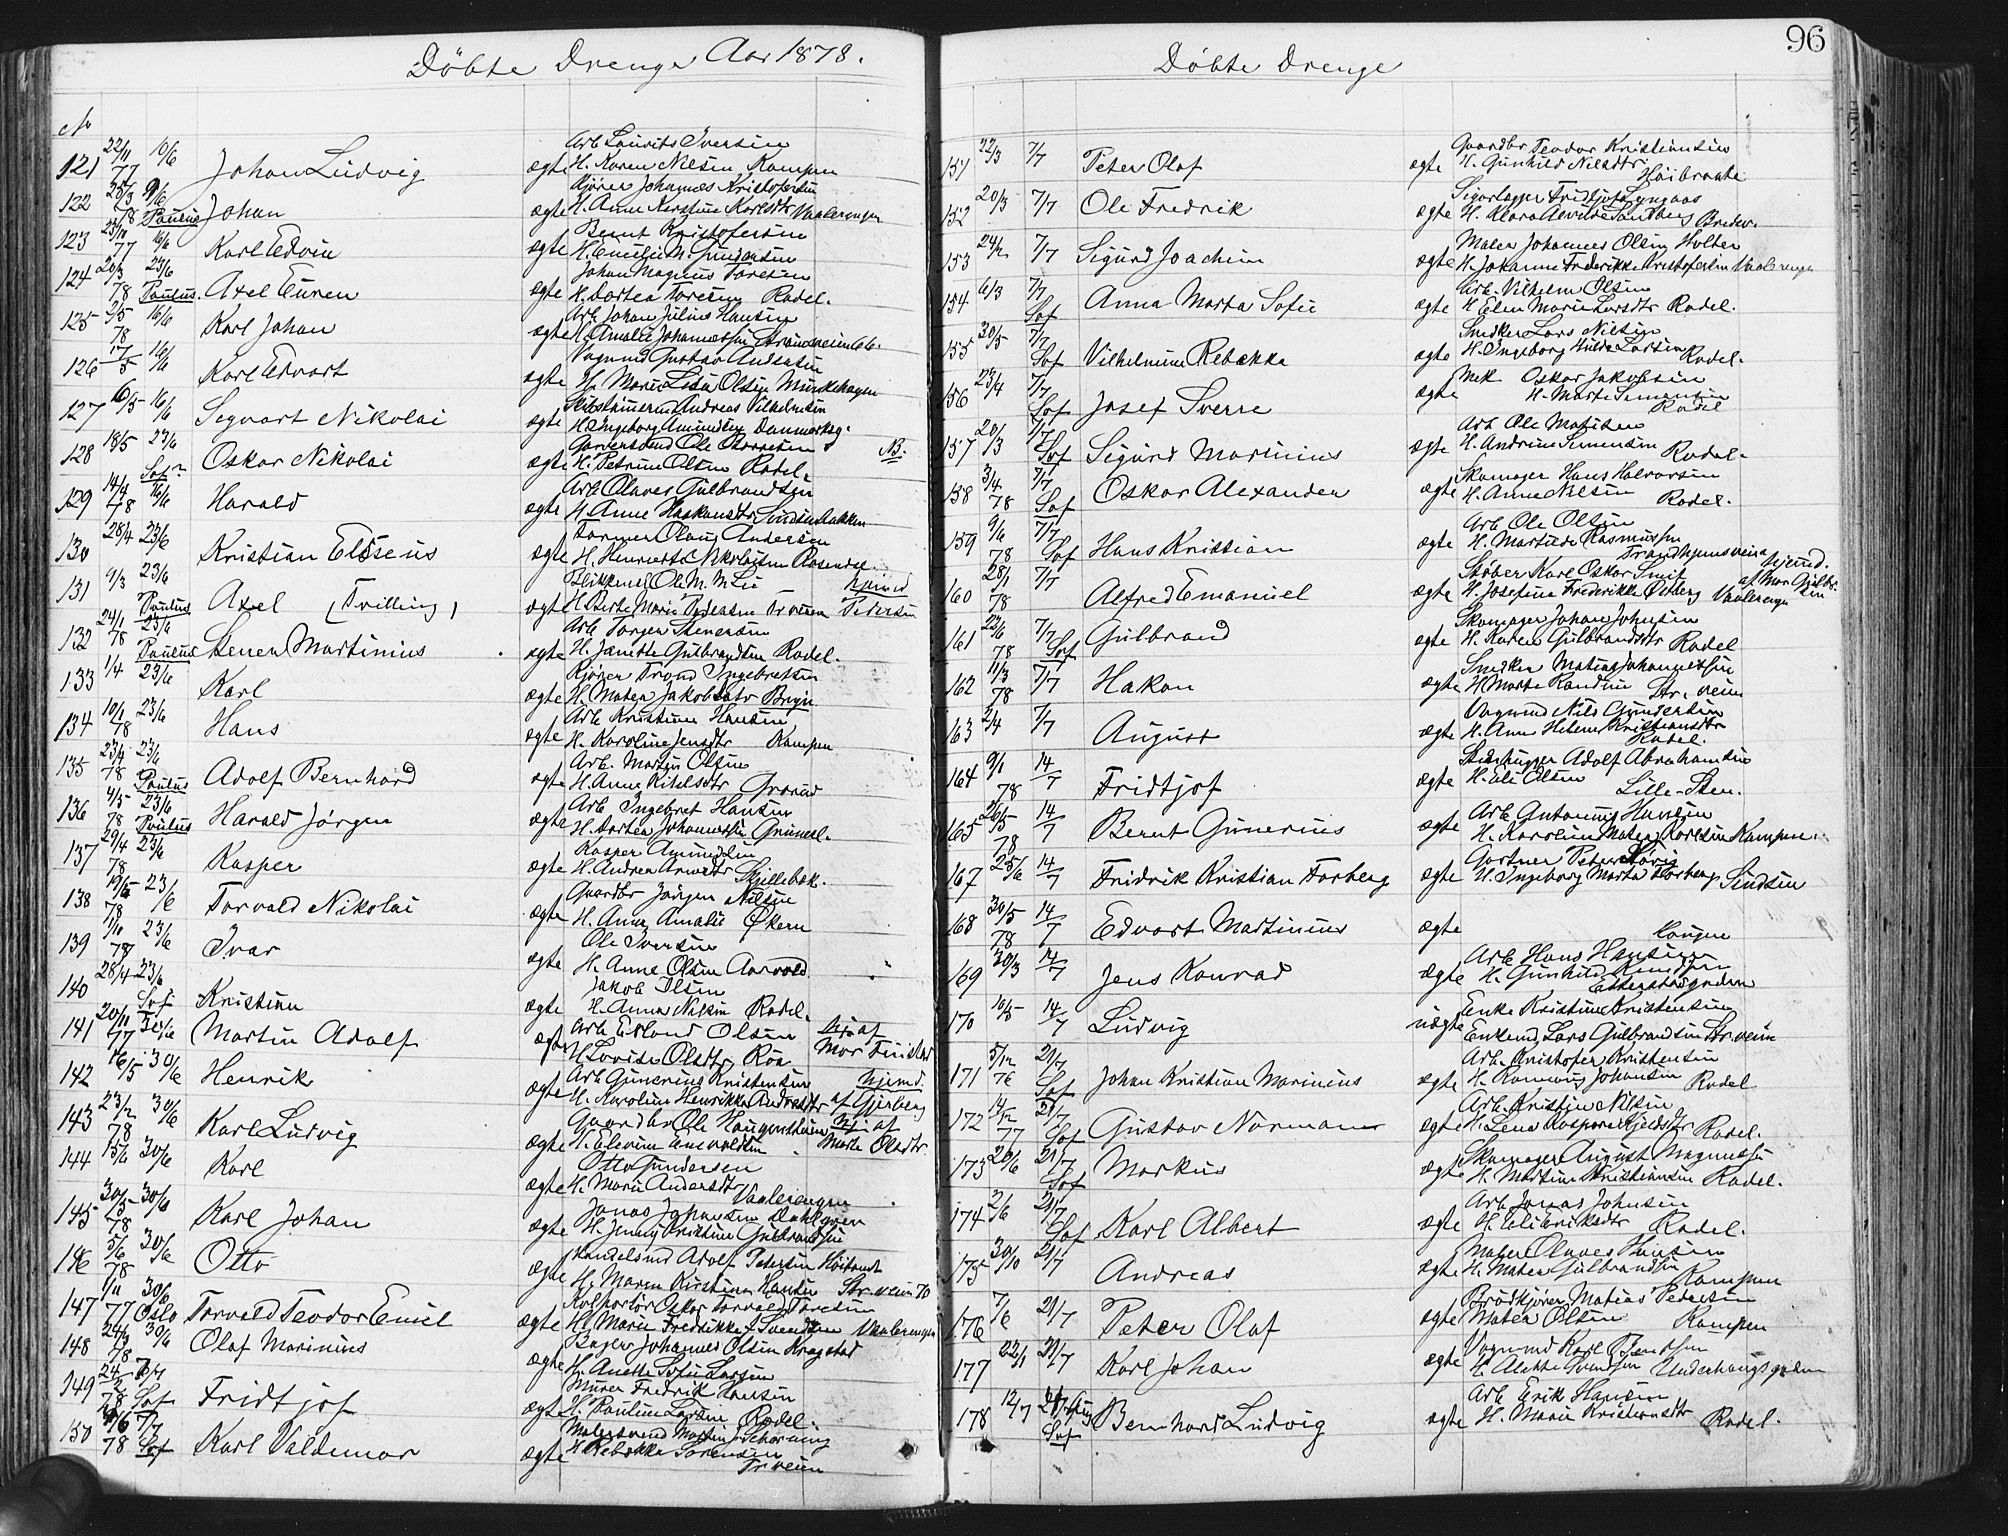 Döbte Drenge Aar 1878.
No
121 22/11 77 16/6 Johan Ludvig ægte Arb Laurits Iversen
H. Karen Nilsen Kampen
122 25/3 78 9/6 Paulus Johan ægte Kjører Johannes Kristofersen
H. Anne Kirstine Karlsdtr Vaalerengen
123 23/10 77 16/6 Karl Edvin ægte Bernt Kristofersen
H. Emilie M. Gundersen
124 20/3 78 23/6 Paulus Axel Euren ægte Johan Magnus Toresen
H. Dortea Toresen Rodel.
125 2/5 78 16/6 Karl Johan ægte Arb Johan Julius Hansen
H. Amalie Johannessen Strømsveien 66.
126 17/5 16/6 Karl Edvart ægte Vognmd Gustav Andersen
H. Marie Lisa Olsen Munkehagen
127 6/5 16/6 Segvart Nikolai ægte Skibstømerm Andreas Vilhelmsen
H. Ingeborg Amundsen Danmarksg.
128 18/5 23/6 Sof? Oskar Nikolai ægte Garversvend Ole
H. Petrine Olsen Rodel. NB.
129 14/4 78 16/6 Harald ægte Arb Olaves Gulbrandsen
H. Anne Haakansdtr Svindsenbakken
130 28/4 23/6 Kristian Eliseus ægte Former Olaus Andersen
H. Henriette Nikolaisen Rosendal
131 9/3 23/6 Paulus Axel (Tvilling) ægte Flikkend Ole M. M. Lie hjemd
H. Berte Marie Pedersen Tr veien Petersen
132 24/1 78 23/6 Paulus Stener Martinius ægte Arb Torger Stenersen
H. Janette Gulbrandsen Rodel.
133 1/4 23/6 Karl ægte Kjører Trond Ingebretsen
H. Matea Jakobsdtr Bryn
134 10/1 78 23/6 Hans ægte Arb Kristian Hansen
H. Karoline Jensdtr Kampen
135 23/4 78 23/6 Paulus Adolf Bernhard ægte Arb. Martin Olsen
H. Anne Kitelsdtr Grorud
136 4/5 78 23/6 Paulus Harald Jørgen ægte Arb Ingebret Hansen
H. Dortea Johannessen Grünerl.
137 29/4 78 23/6 Kasper ægte Kasper Amundsen
H. Andrea Arnesdtr Skillebæk.
138 19/5 78 23/6 Torvald Nikolai ægte Gaardbr Jørgen Nilsen
H. Anne Amalie Økern
139 1/10 77 23/6 Ivar ægte Ole Iversen
H. Anne Olsen Aarvold.
140 28/4 23/6 Sof Kristian ægte Jakob Olsen
H. Anna Nilsen Rodel.
141 20/11 77 30/6 Martin Adolf ægte Arb Edland Olsen hj. af
H. Lovise Olsdtr Roa Mor Finstad
142 16/5 30/6 Henrik ægte Arb Gunerius Kristensen hjemd.
H. Karoline Henrikke Andersdtr af Gjerberg
143 23/2 78 30/6 Karl Ludvig ægte Gaardbr Ole Haugersthuen hj. af
H. Elevine Enevoldsen Marte Olsdtr.
144 15/6 30/6 Karl ægte Otto Gundersen
H. Marie Andersdtr Vaalerengen
145 30/5 78 30/6 Karl Johan ægte Jonas Johansen Dahlgren
H. Jenny Kristine Gulbrandsen
146 5/6 78 30/6 Otto ægte Handelsmd Adolf Petersen Hoistandt
H. Maren Kirstine Hansen Str. veien 70
147 1/11 77 30/6 Oslo Torvald Teodor Emil ægte Kolportør Oskar Torvald Toresen
H. Marie Fredrikke Svendsen Vaalerengen
148 24/3 78 30/6 Olaf Marinius ægte Bager Johannes Olsen Kragstad
H. Anette Sofie Larsen
149 24/2 78 7/7 Sof Fridtjof ægte Murer Fredrik Hansen
H. Pauline Larsen Rodel.
150 9/6 78 7/7 Sof Karl Valdemar ægte Malersvend Martin J. Scharning
H. Rebekka Sørensen Tr veien
96
Döbte Drenge
151 22/3 7/7 Peter Olaf ægte Gaardbr Teodor Kristiansen
H. Gunhild Nilsdtr Høibraate
152 20/3 7/7 Ole Fredrik ægte Sigarlager Fridtjof Lyngaas
H. Klara Alvine Sandberg Bredev.
153 24/2 7/7 Sigurd Joachim ægte Maler Johannes Olsen Holter
H. Johanne Frederikke Kristofersen Vaalerengen
154 6/3 7/7 Sof Anna Marta Sofie ægte Arb. Vilhelm Olsen
H. Elen Marie Larsdtr Rodel.
155 30/5 7/7 Sof Vilhelmine Rebekka ægte Snedker Lars Nilsen
H. Ingeborg Hulda Larsen Rodel.
156 23/4 7/7 Sof Josef Sverre ægte Mek Oskar Jakobsen
H. Marte Simensen Rodel
157 20/3 7/7 Sof Sigurd Marinius ægte Arb Ole Matisen
H. Andrine Simensen Rodel.
158 3/4 78 7/7 Sof Oskar Alexander ægte Skomager Hans Halvorsen
H. Anne Nilsen Rodel.
159 9/6 78 7/7 Sof Hans Kristian ægte Arb Ole Olsen
H. Martilde Rasmussen Trondhjemsveien
160 28/1 78 7/7 Alfred Emanuel ægte Støber Karl Oskar Smit hjemd.
H. Josefine Frederikke Østberg Vaalerengen af Mor Gulbr.sen
161 22/6 78 7/7 Sof Gulbrand ægte Skomager Johan Johnsen
H. Karen Gulbrandsdtr Rodel
162 11/3 78 7/7 Hakon ægte Snedker Matias Johannessen
H. Marte Randine Str. veien
163 2/4 7/7 August ægte Vognmd Nils Gundersen
H. Anne Helene Kristiansdtr Rodel.
164 9/1 78 14/7 Fridtjof ægte Stenhugger Adolf Abrahamsen
H. Eli Olsen Lille-Sten.
165 26/5 78 14/7 Bernt Gunerius ægte Arb Antonius Hansen
H. Karoline Matea Karlsen Kampen.
167 25/6 14/7 Fridrik Kristian Forberg ægte Gartner Peter Løvig
H. Ingeborg Marta Forberg Sindsen
168 30/5 78 14/7 Edvart Martinius ægte
169 30/3 14/7 Jens Konrad ægte Arb Hans Hansen
H. Gunhild Knudsen Etterstadgaden
170 16/5 14/7 Ludvig uægte Enke Kristine Kristensen
Enkemd Lars Gulbrandsen Str. veien
171 5/12 76 21/7 Sof Johan Kristian Marinius ægte Arb. Kristofer Kristensen
H. Johansen Rodel
172 14/12 77 21/7 Sof Gustav Norman ægte Arb. Kristian Nilsen
H. Lena Kasparie Kjeldsdtr Rodel.
173 20/6 21/7 Sof Markus ægte Skomager August Magnussen
H. Martine Kristiansen Rodel.
174 2/6 21/7 Sof Karl Albert ægte Arb Jonas Johnsen
H. Eli Eriksdtr Rodel.
175 30/10 21/7 Andreas ægte Maler Olaves Hansen
H. Matea Gulbrandsen Kampen
176 7/6 21/7 Peter Olaf ægte Brødkjører Matias Pedersen
Matea Olsen Kampen
177 22/1 21/7 Karl Johan ægte Vognmd Karl
H. Alette Svendsen Underhaugsgaden
178 12/7 21/7 Sof Bernhard Ludvig ægte Arb Erik Hansen
H. Marie Kristensdtr Rodel.